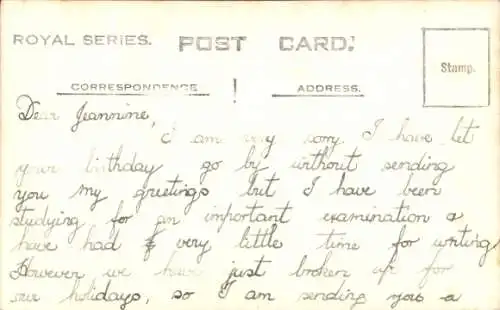 ROYAL SERIES. POST CARD.
Stamp.
CORRESPONDENCE ADDRESS.
Dear Jeannine,
I am very sorry I have let
your birthday go by without sending
you my greetings but I have been
studying for an important examination &
have had very little time for writing
However we have just broken up for
our holidays, so I am sending you a